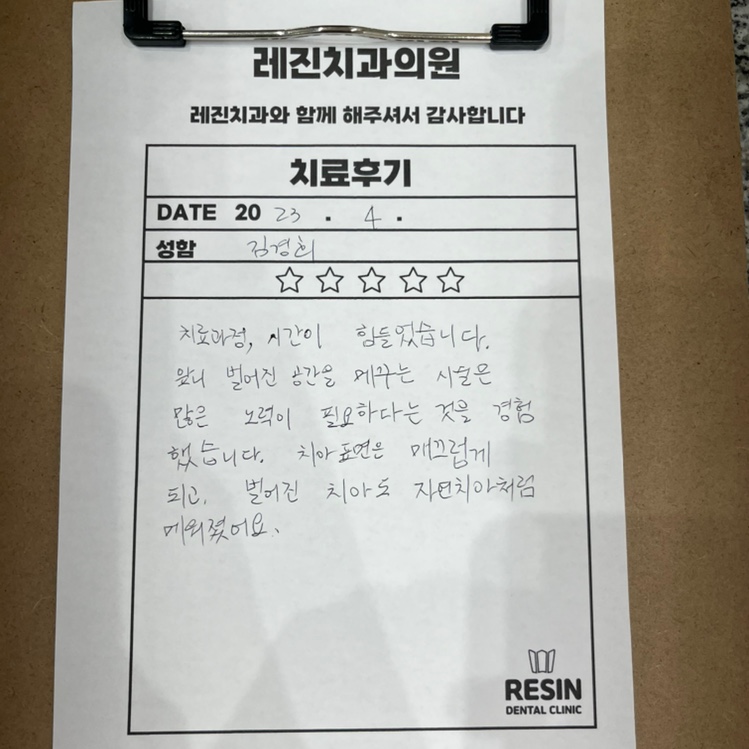 레진치과의원
레진치과와 함께 해주셔서 감사합니다
치료후기
DATE 20 23 . 4 .
성함 김경희
치료과정, 시간이 힘들었습니다.
앞니 벌어진 공간을 메꾸는 시술은
많은 노력이 필요하다는 것을 경험
했습니다. 치아 표면은 매끄럽게
되고, 벌어진 치아도 자연치아처럼
메워졌어요.
RESIN
DENTAL CLINIC